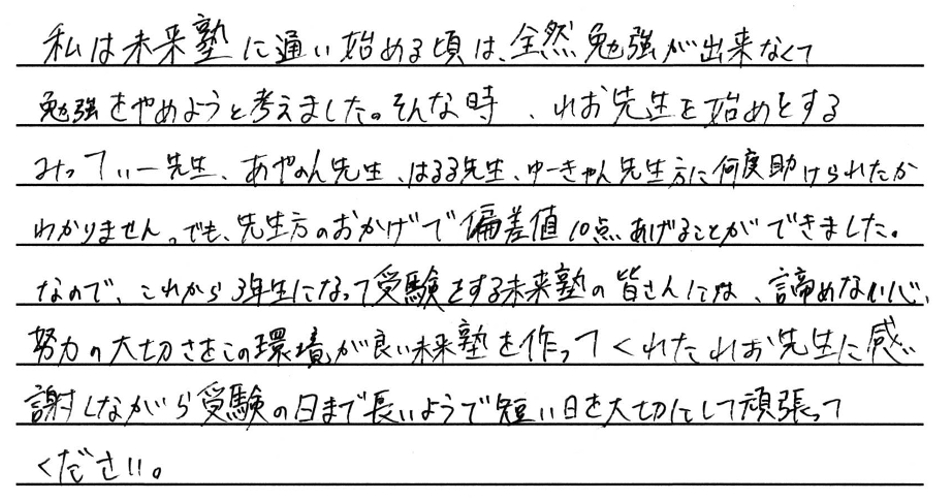 私は未来塾に通い始める頃は、全然勉強が出来なくて
勉強をやめようと考えました。そんな時、れお先生を始めとする
みってぃー先生、あやのん先生、はるる先生、ゆーきゃん先生方に何度助けられたか
わかりません。でも、先生方のおかげで偏差値10点あげることができました。
なので、これから3年生になって受験をする未来塾の皆さんには、諦めない心、
努力の大切さをこの環境が良い未来塾を作ってくれたれお先生に感
謝しながら受験の日まで長いようで短い日を大切にして頑張って
ください。